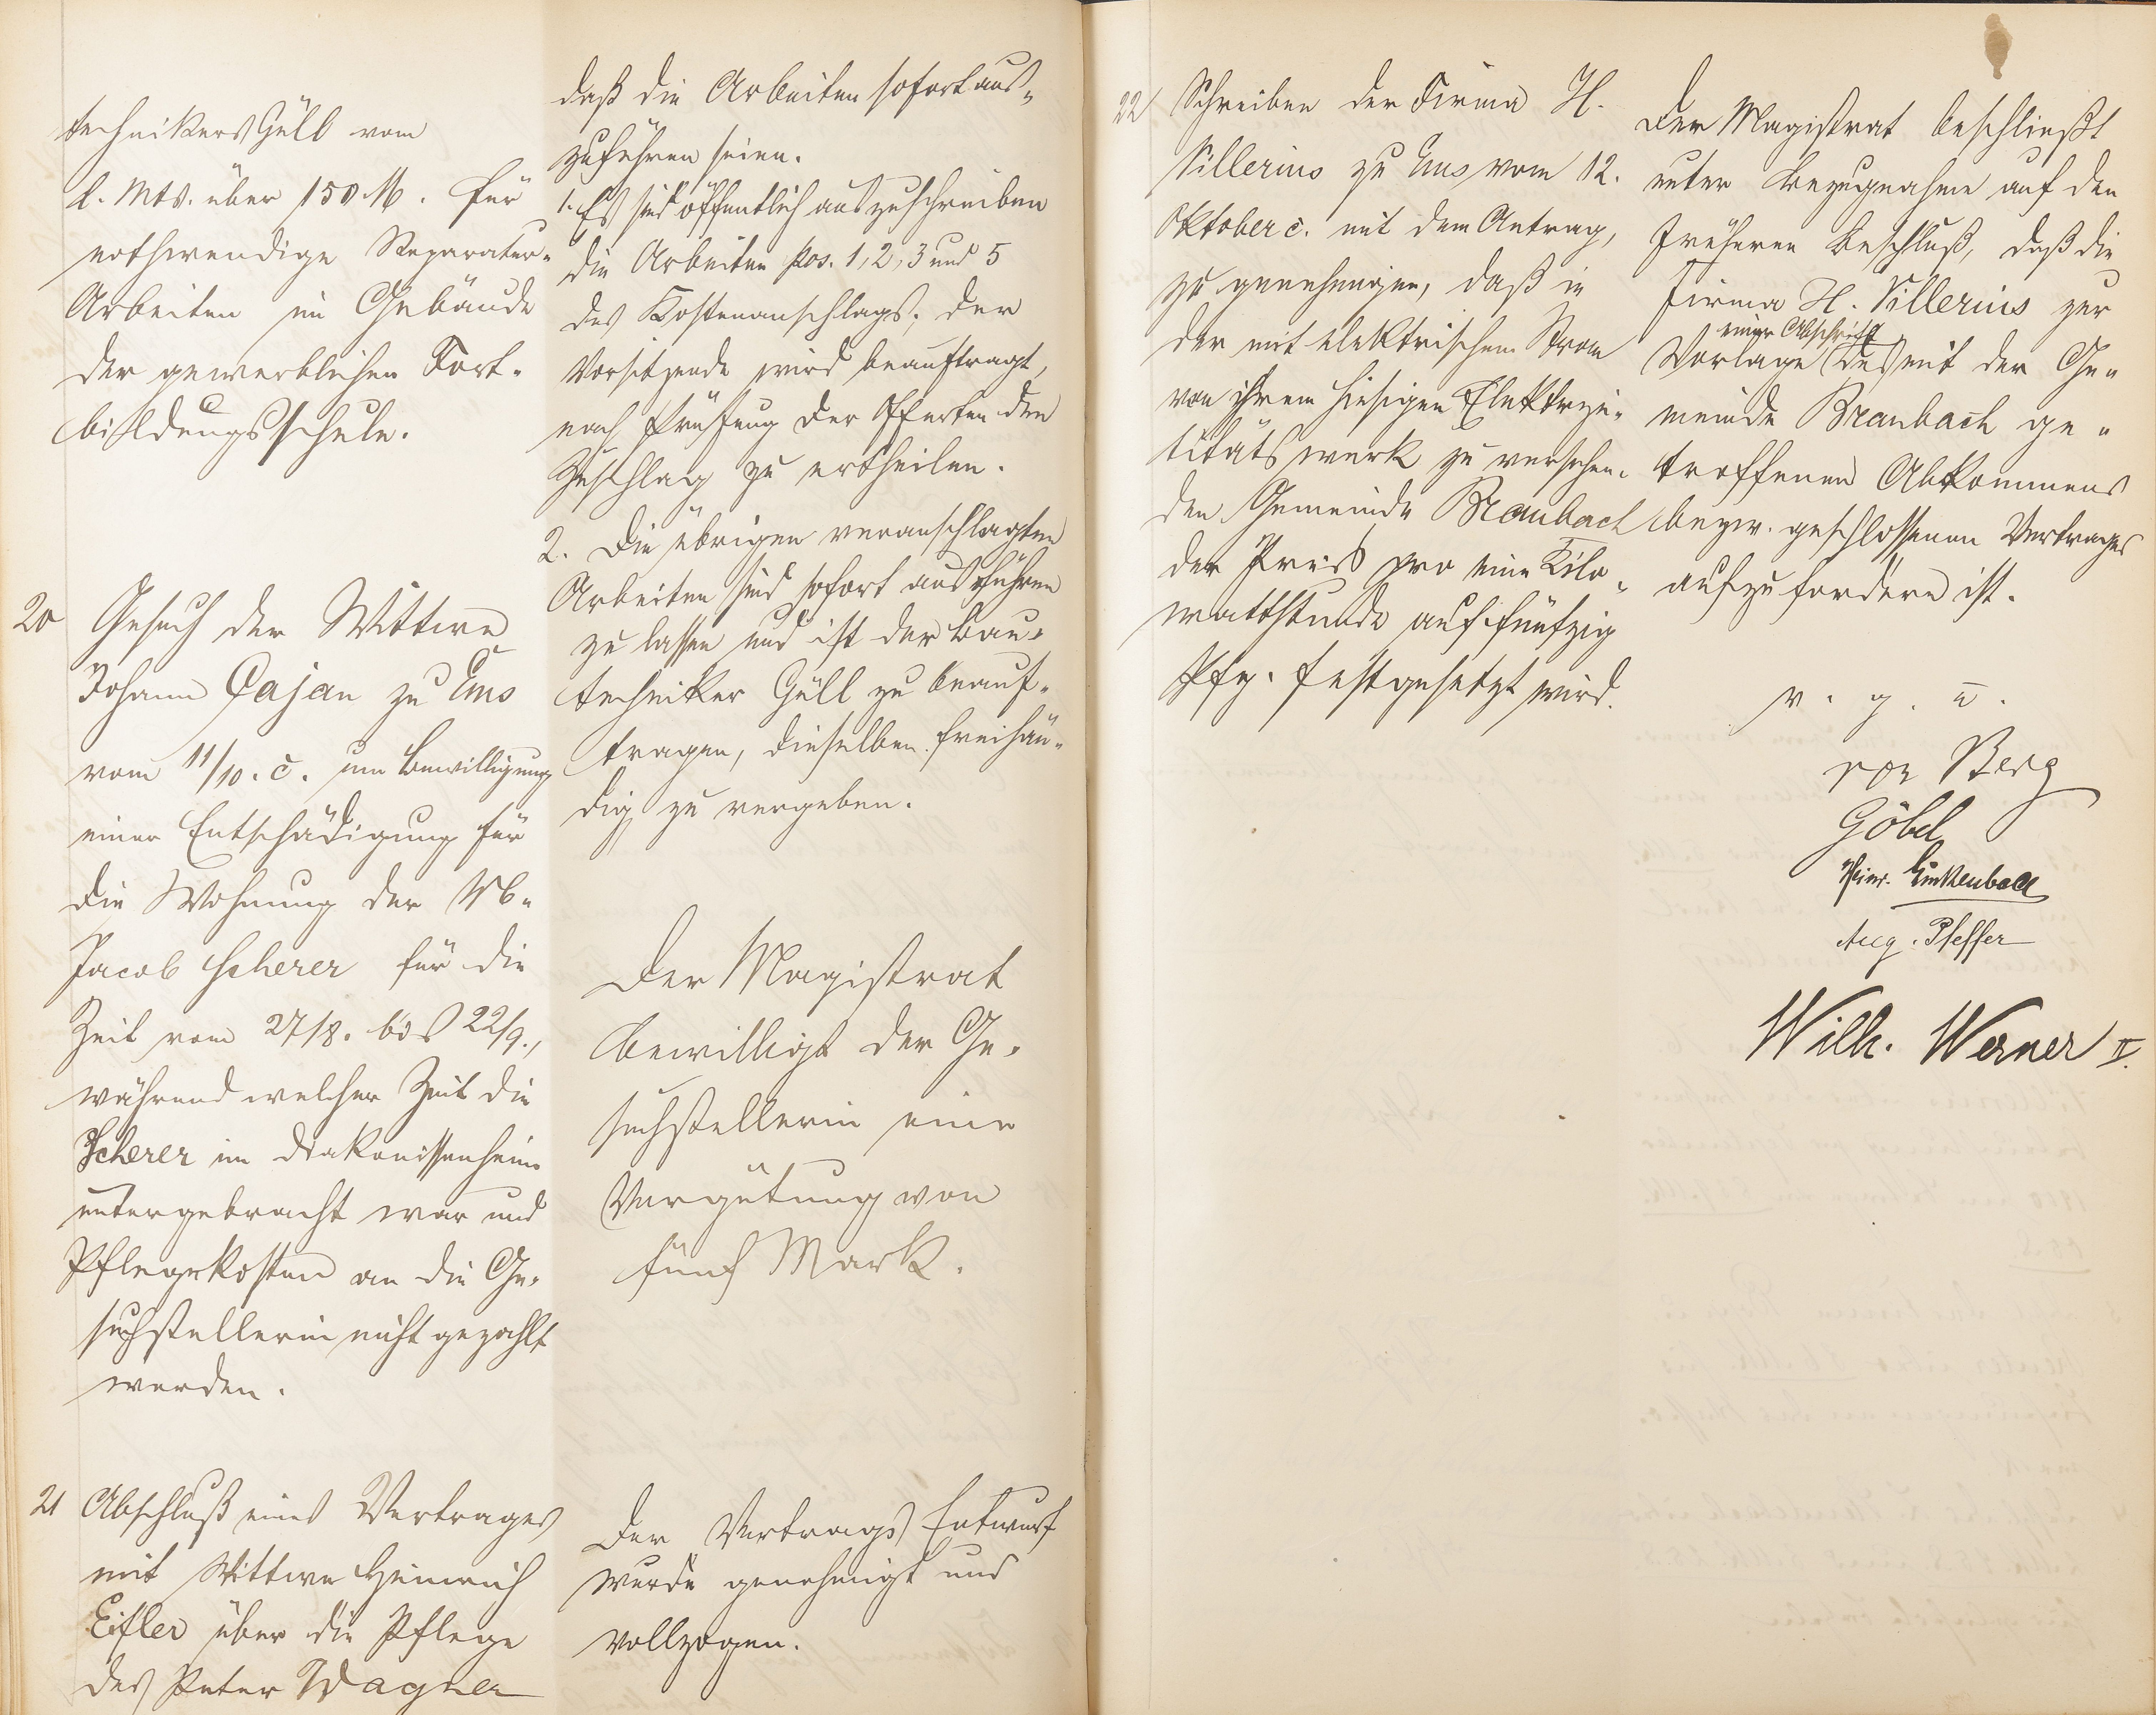 technikers Güll vom
l. Mts. über 150 M. für
nothwendige Reparatur-
Arbeiten im Gebäude
der gewerblichen Fort-
bildungsschule.
daß die Arbeiten sofort aus-
zuführen seien.
1. Es sind öffentlich auszuschreiben
die Arbeiten Pos. 1, 2, 3 und 5
des Kostenanschlags; der
Vorsitzende wird beauftragt,
nach Prüfung der Offerten den
Zuschlag zu ertheilen.
2. Die übrigen veranschlagten
Arbeiten sind sofort ausführen
zu lassen und ist der Bau-
techniker Güll zu beauf-
tragen, dieselben freihän-
dig zu vergeben.
20 Gesuch der Wittwe
Johann Cajan zu Ems
vom 11/10. c. um Bewilligung
einer Entschädigung für
die Wohnung der Wb.
Jacob Scherer für die
Zeit vom 27/8. bis 22/9.,
während welcher Zeit die
Scherer im Diakonissenheim
untergebracht war und
Pflegekosten an die Ge-
suchstellerin nicht gezahlt
wurden.
Der Magistrat
bewilligt der Ge-
suchstellerin eine
Vergütung von
fünf Mark.
21 Abschluß eines Vertrages
mit Wittwe Heinrich
Eifler über die Pflege
des Peter Wagner
Der Vertrags Entwurf
wurde genehmigt und
vollzogen.
22/ Schreiben der Firma H.
Villerius zu Ems vom 12.
Oktober c. mit dem Antrag,
zu genehmigen, daß in
der mit elektrischem Strom
von ihrem hiesigen Elektrizi-
titätswerk zu versehen-
den Gemeinde Braubach
der Preis pro eine Kilo-
wattstunde auf fünfzig
Pfg. festgesetzt wird.
Der Magistrat beschließt
unter Bezugnahme auf den
früheren Beschluß, daß die
Firma H. Villerius zur
einer Abschrift
Vorlage des mit der Ge-
meinde Braubach ge-
troffenen Abkommens
bezw. geschlossenen Vertrages
aufzufordern ist.
v. g. u.
von Berg
Göbel
Heinr. Linkenbach
Aug. Pfeffer
Wilh. Werner II.